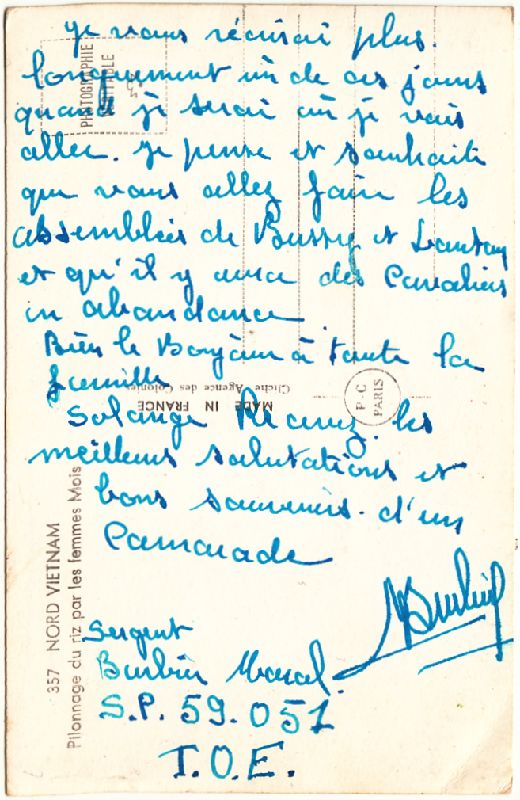 Je vous récrirai plus
longuement un de ces jours
quand je serai où je vais
aller. Je pense et souhaite
que vous allez faire les
Assemblées de Bussy et Lantan
et qu'il y aura des Cavaliers
en abandance
Bien le Bonjour à toute la
famille
Solange Recevez les
meilleurs salutations et
bons souvenirs d'un
Camarade
Sergent
Marcel
S.P. 59.051
T.O.E.
PHOTOGRAPHIE
VÉRITABLE
Cliché Agence des Colonies
MADE IN FRANCE
P.C
PARIS
357 NORD VIETNAM
Pilonnage du riz par les femmes Mois